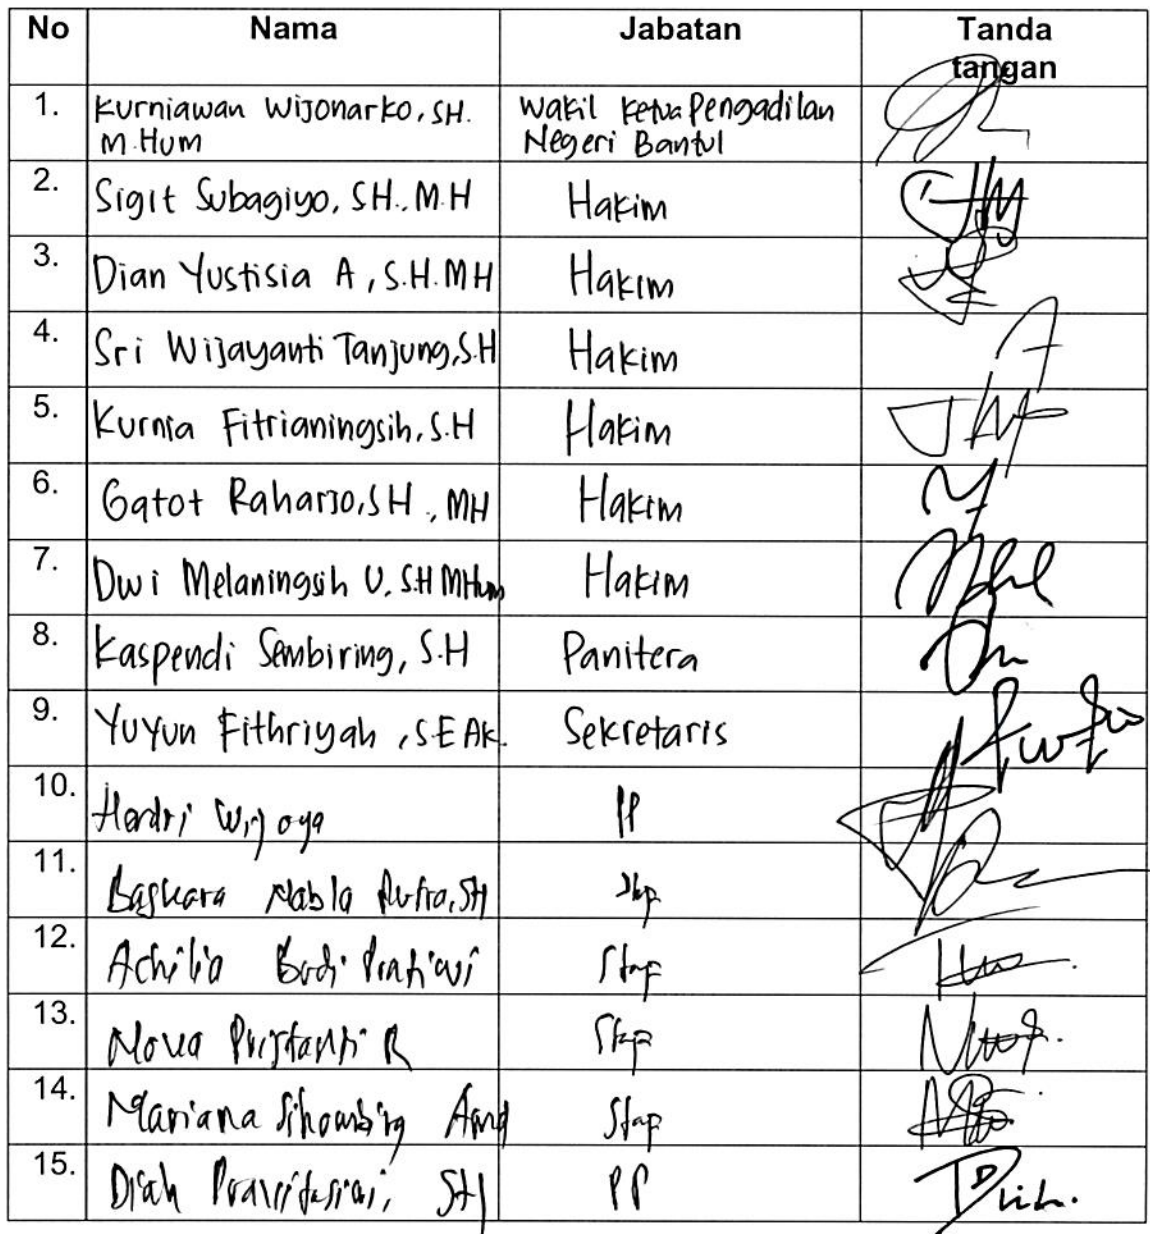 No Nama Jabatan Tanda
tangan
1. Kurniawan Wijonarko, SH. Wakil Ketua Pengadilan
M.Hum Negeri Bantul
2. Sigit Subagiyo, SH., M.H Hakim
3. Dian Yustisia A, S.H. MH Hakim
4. Sri Wijayanti Tanjung, S.H Hakim
5. Kurnia Fitrianingsih, S.H Hakim
6. Gatot Raharjo, SH., MH Hakim
7. Dwi Melaningsih U, S.H MHum Hakim
8. Kaspendi Sembiring, S.H Panitera
9. Yuyun Fithriyah, S.E Ak. Sekretaris
10. Hendri Wijoya PP
11. Baskara Nabla Putra, SH
12. Achilia Budi Pratiwi Stap
13. Nova R Stap
14. Mariana Sihombing Amd Stap
15. Diah SH PP